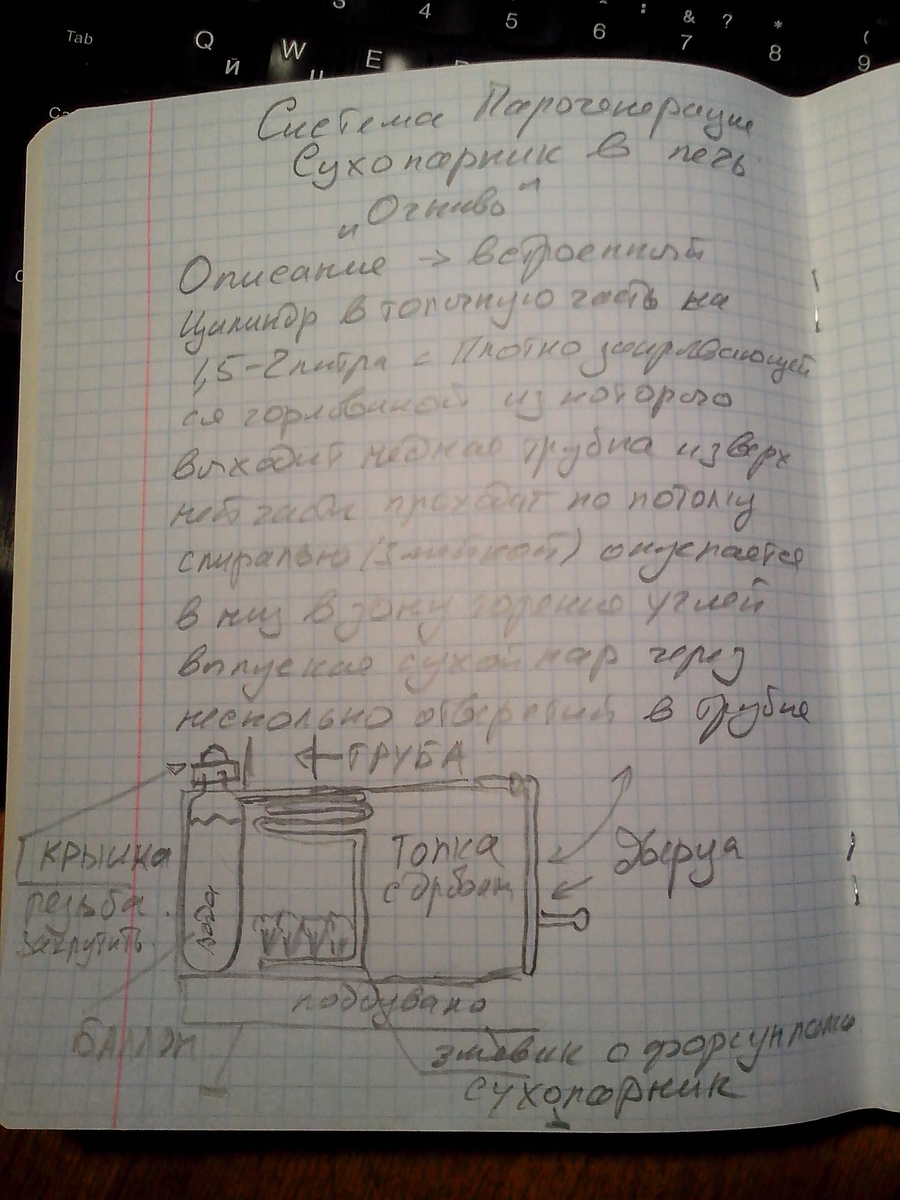 Tab
Q
Й
W
E
4
5
6
&
7
?
*
8
(
9
Система Парогенерации
Сухопарник в печь
"Огниво"
Описание → встроенный
Цилиндр в топочную часть на
1,5-2 литра с Плотно
ся горловиной из которого
выходит медная трубка из верх
проходит по потолу
спирально (змейкой) опускается
в низ в зону горение углей
выпуская сухой пар через
несколько отверстий в трубке
← ТРУБА
Крышка
резьба
закрутить
вода
Топка
с дровам
Дверца
поддувало
Баллон
змевик с форсунками
сухопарник